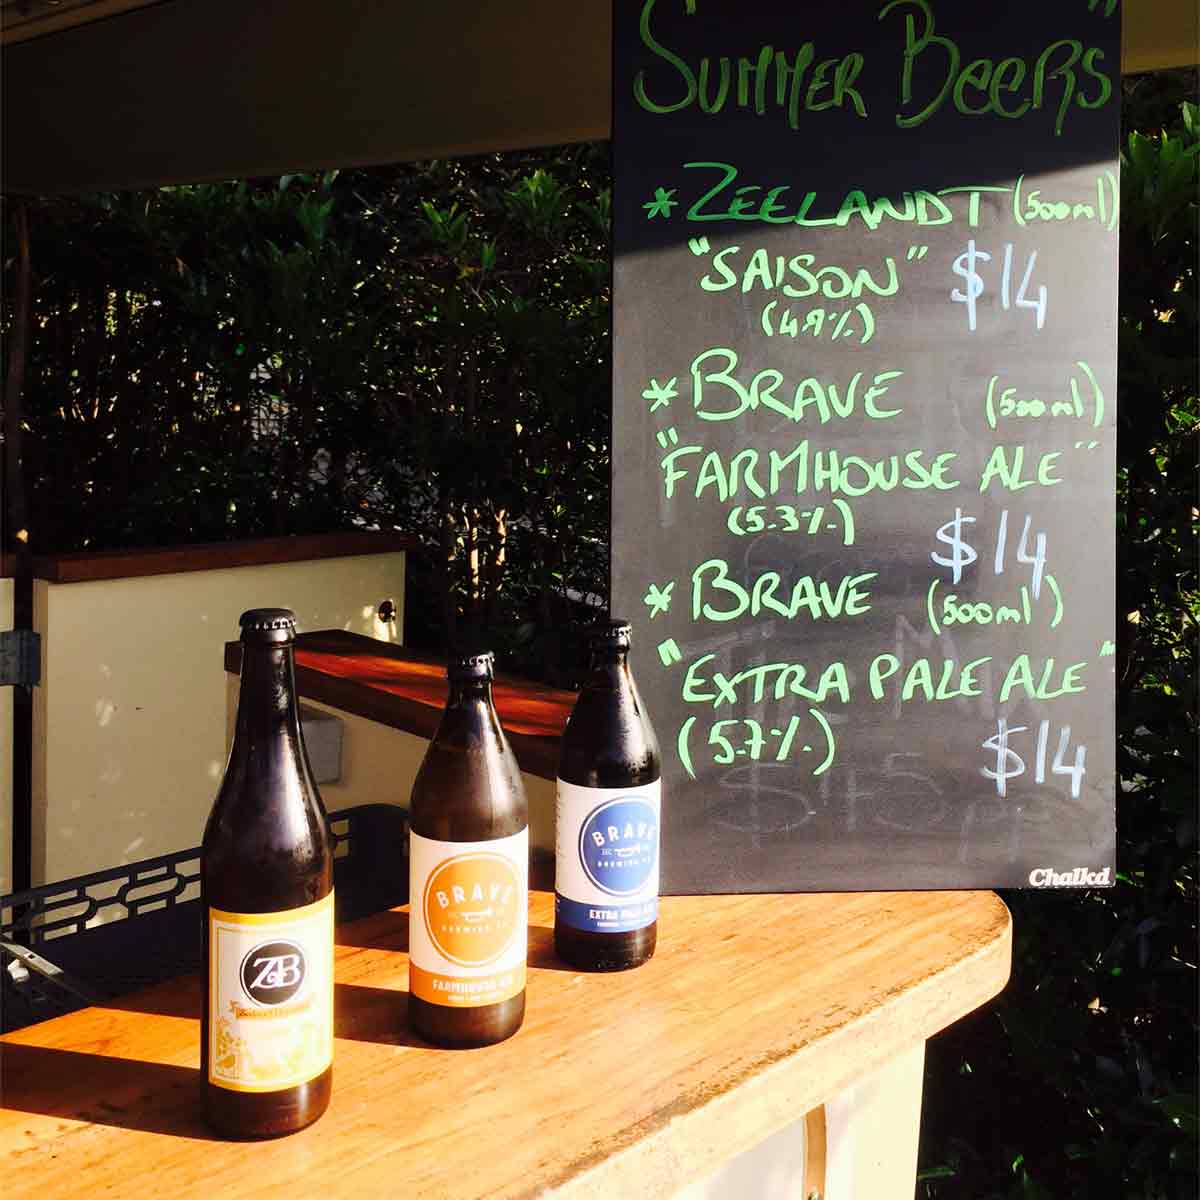 Summer Beers"
* Zeelandt (500ml)
"Saison" $14
(4.9%)
* Brave (500ml)
"Farmhouse Ale"
(5.3%) $14
* Brave (500ml)
"Extra Pale Ale"
(5.7%) $14
$15
Chalkd
ZB
BRAVE
BREWING CO
FARMHOUSE ALE
BRAVE
BREWING CO
EXTRA PALE ALE